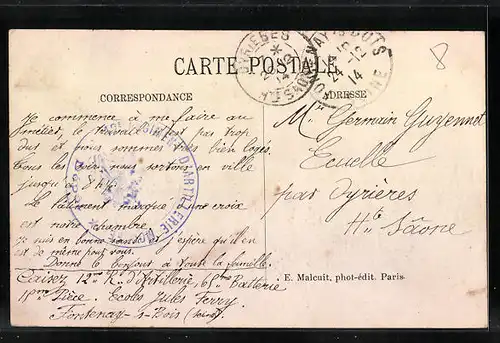 CARTE POSTALE
CORRESPONDANCE
ADRESSE
Je commence à me faire au
métier, le travail n'est pas trop
dur et nous sommes très bien logés.
Tous les soirs nous sortons en ville
jusqu'à 8 h ½.
Le bâtiment marqué d'une croix
est notre chambre.
Je suis en bonne santé et j'espère qu'il en
est de même pour vous.
Donne le bonjour à toute la famille.
12me Rt d'Artillerie, 65me Batterie
11me Pièce. Ecoles Jules Ferry
Fontenay-s-Bois (Seine)
Mr Germain Guyennot
Ecuelle
par Oyrières
Hte Saône
E. Malcuit, phot-édit. Paris.
OYRIÈRES
14
D'ARTILLERIE
8